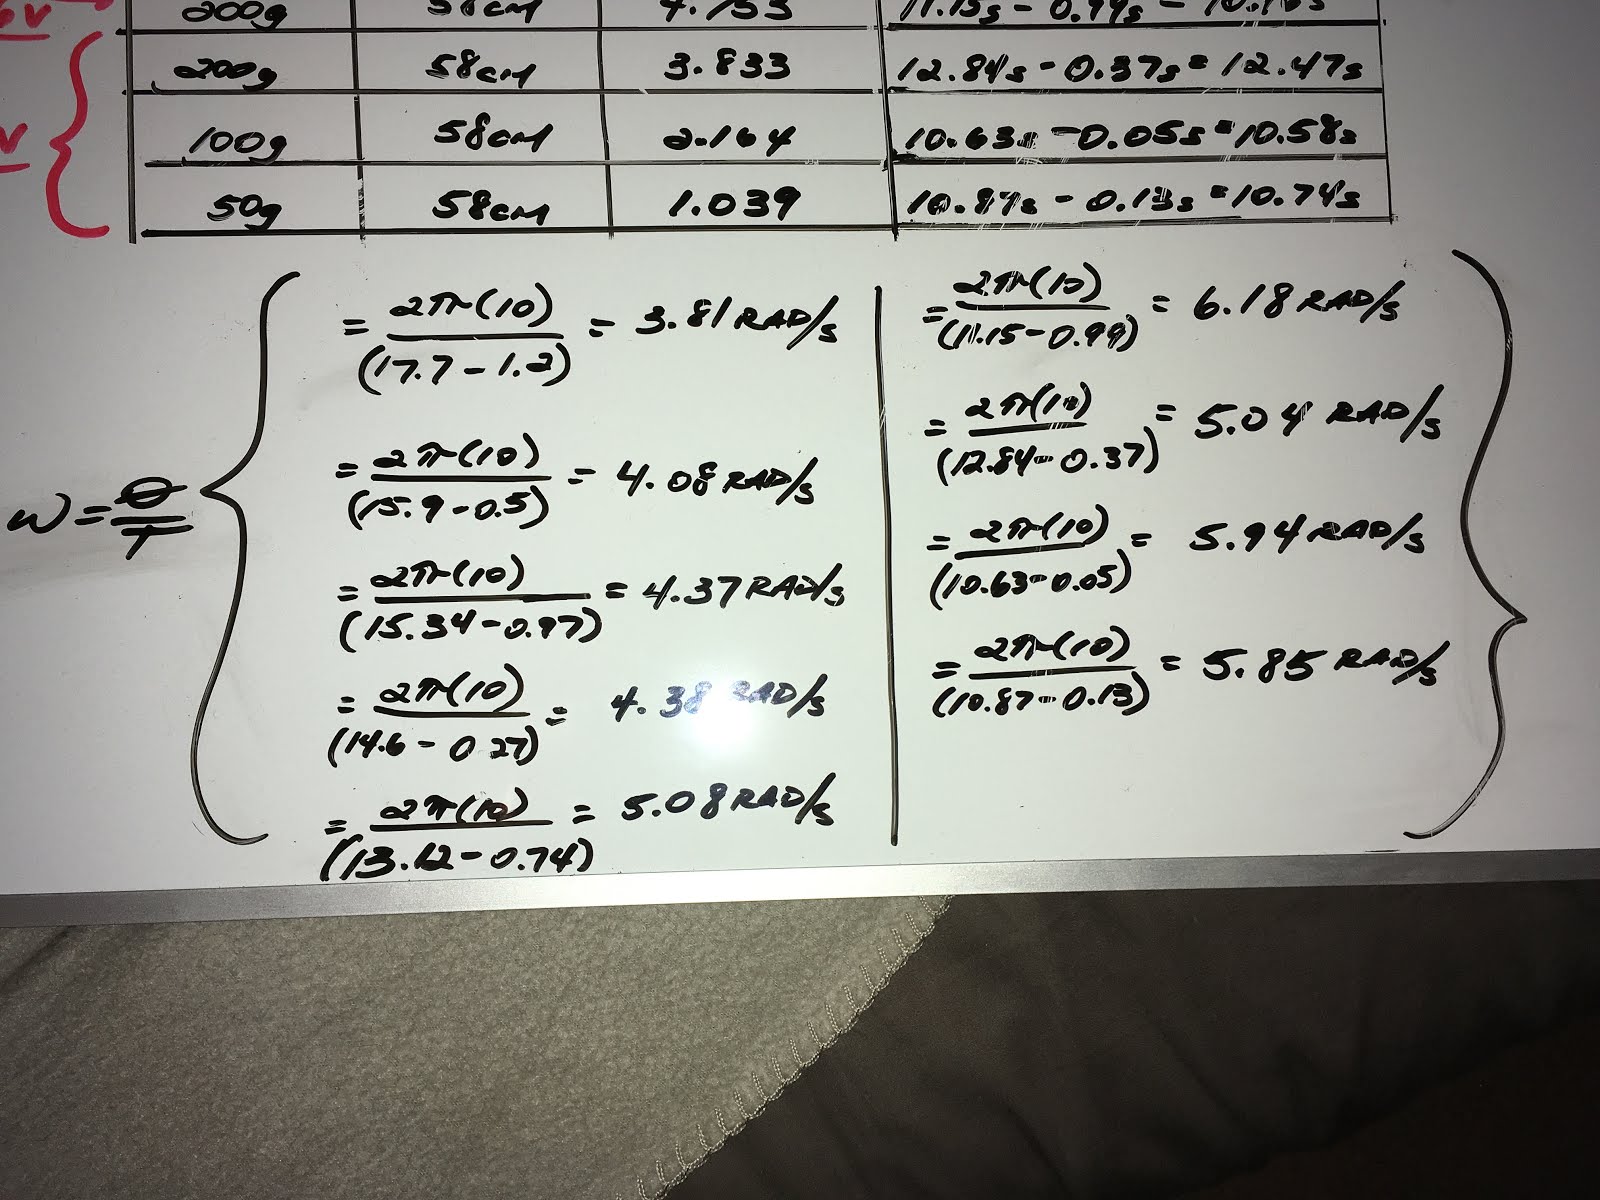 200g 58cm 12.84s - 0.37s = 12.47s
200g 58cm 3.833
100g 58cm 2.164 10.63s - 0.05s = 10.58s
50g 58cm 1.039 10.87s - 0.13s = 10.74s
ω = θ/T
= 2π(10)/(17.7 - 1.2) = 3.81 RAD/s
= 2π(10)/(15.9 - 0.5) = 4.08 RAD/s
= 2π(10)/(15.34 - 0.97) = 4.37 RAD/s
= 2π(10)/(14.6 - 0.27) = 4.38 RAD/s
= 2π(10)/(13.12 - 0.74) = 5.08 RAD/s
= 2π(10)/(11.15 - 0.99) = 6.18 RAD/s
= 2π(10)/(12.84 - 0.37) = 5.04 RAD/s
= 2π(10)/(10.63 - 0.05) = 5.94 RAD/s
= 2π(10)/(10.87 - 0.13) = 5.85 RAD/s